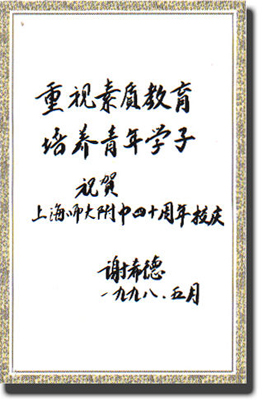 重视素质教育
培养青年学子
祝贺
上海师大附中四十周年校庆
谢希德
一九九八.五月